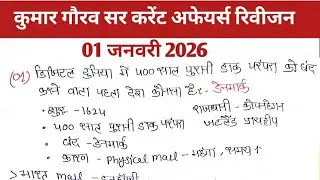 कुमार गौरव सर करेंट अफेयर्स रिवीजन
01 जनवरी 2026
(01) डिजिटल दुनिया में 400 साल पुरानी डाक परंपरा को बंद
करने वाला पहला देश कौनसा है:- डेनमार्क
• शुरू - 1624 राजधानी - कोपेनहेगन
• 400 साल पुरानी डाक परंपरा जटलैंड प्रायद्वीप
• बंद - डेनमार्क
• कारण - Physical mail - महंगा, समय ↑
> भारत mail -